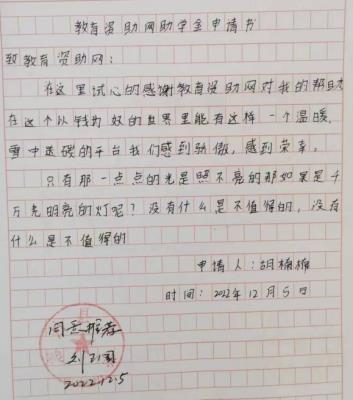 教育资助网助学金申请书
致教育资助网：
在这里试心的感谢教育资助网对我的帮助
在这个以钱为奴的世界里能有这样一个温暖,
雪中送碳的平台我们感到骄傲,感到荣幸,
只有那一点点的光是照不亮的那如果是千
万光明亮的灯呢?没有什么是不值得的,没有
什么是不值得的
申请人:胡楠
时间:2022年12月5日
同意推荐
2022.12.5